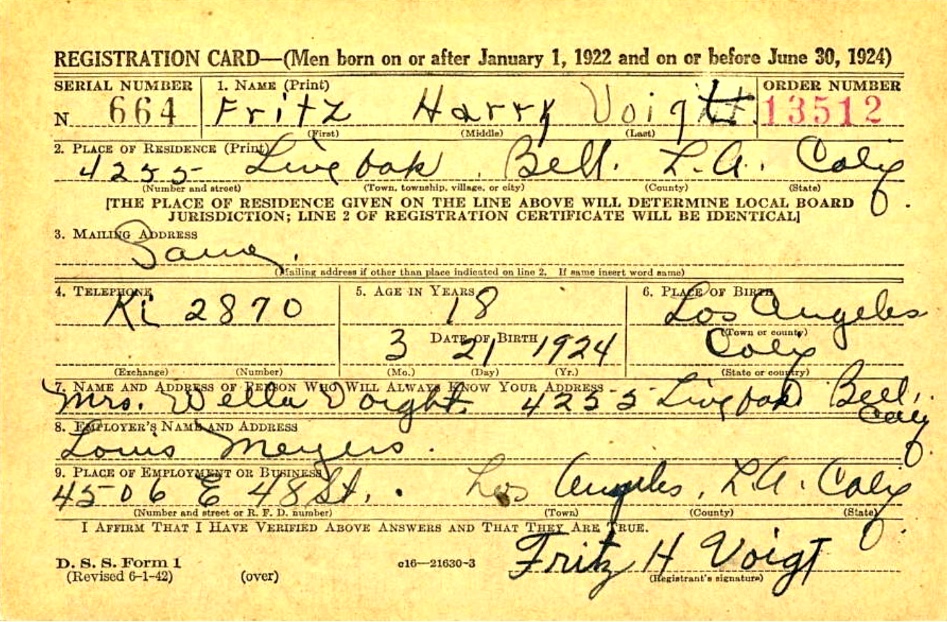 REGISTRATION CARD—(Men born on or after January 1, 1922 and on or before June 30, 1924)
SERIAL NUMBER 1. NAME (Print) ORDER NUMBER
N. 664 Fritz Harry Voight 13512
(First) (Middle) (Last)
2. PLACE OF RESIDENCE (Print)
4255 Live oak, Bell. L.A. Calif.
(Number and street) (Town, township, village, or city) (County) (State)
[THE PLACE OF RESIDENCE GIVEN ON THE LINE ABOVE WILL DETERMINE LOCAL BOARD
JURISDICTION; LINE 2 OF REGISTRATION CERTIFICATE WILL BE IDENTICAL]
3. MAILING ADDRESS
Same.
(Mailing address if other than place indicated on line 2. If same insert word same)
4. TELEPHONE 5. AGE IN YEARS 6. PLACE OF BIRTH
Ki 2870 18 Los Angeles
(Town or county)
DATE OF BIRTH Calif
3 21 1924
(Exchange) (Number) (Mo.) (Day) (Yr.) (State or country)
7. NAME AND ADDRESS OF PERSON WHO WILL ALWAYS KNOW YOUR ADDRESS
Mrs. Della Voight. 4255 Live oak Bell,
Calif
8. EMPLOYER'S NAME AND ADDRESS
Louis Meyers.
9. PLACE OF EMPLOYMENT OR BUSINESS
4506 E 48 St. Los Angeles, L.A. Calif
(Number and street or R. F. D. number) (Town) (County) (State)
I AFFIRM THAT I HAVE VERIFIED ABOVE ANSWERS AND THAT THEY ARE TRUE.
Fritz H Voigt
D. S. S. Form 1
(Revised 6-1-42) (over) c16—21630-3 (Registrant's signature)